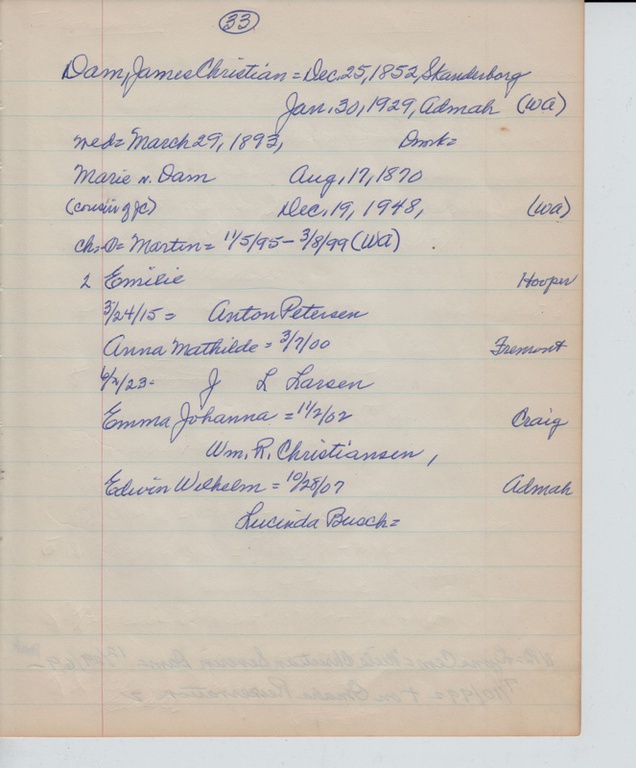 33
Dam, James Christian = Dec. 25, 1852, Skanderborg
Jan. 30, 1929, Admah (WA)
med = March 29, 1893, Dmrk =
Marie n. Dam Aug, 17, 1870
(cousin of JC) Dec. 19, 1948, (WA)
ch = 0 = Martin = 11/5/95 - 3/8/99 (WA)
2 Emilie Hooper
3/24/15 = Anton Petersen
Anna Mathilde = 3/7/00 Fremont
6/2/23 - J L Larsen
Emma Johanna = 11/2/02 Craig
Wm. R. Christiansen,
Edwin Wilhelm = 10/28/07 Admah
Lucinda Busch =